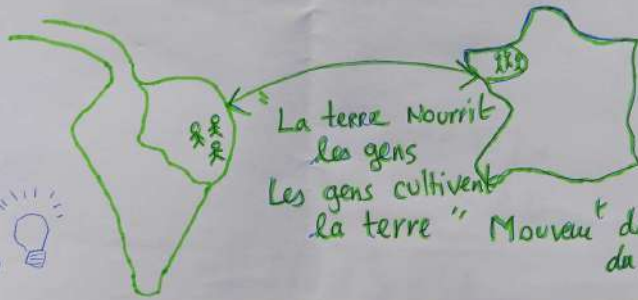 "La terre Nourrit
les gens
Les gens cultivent
la terre" Mouvemt d
du